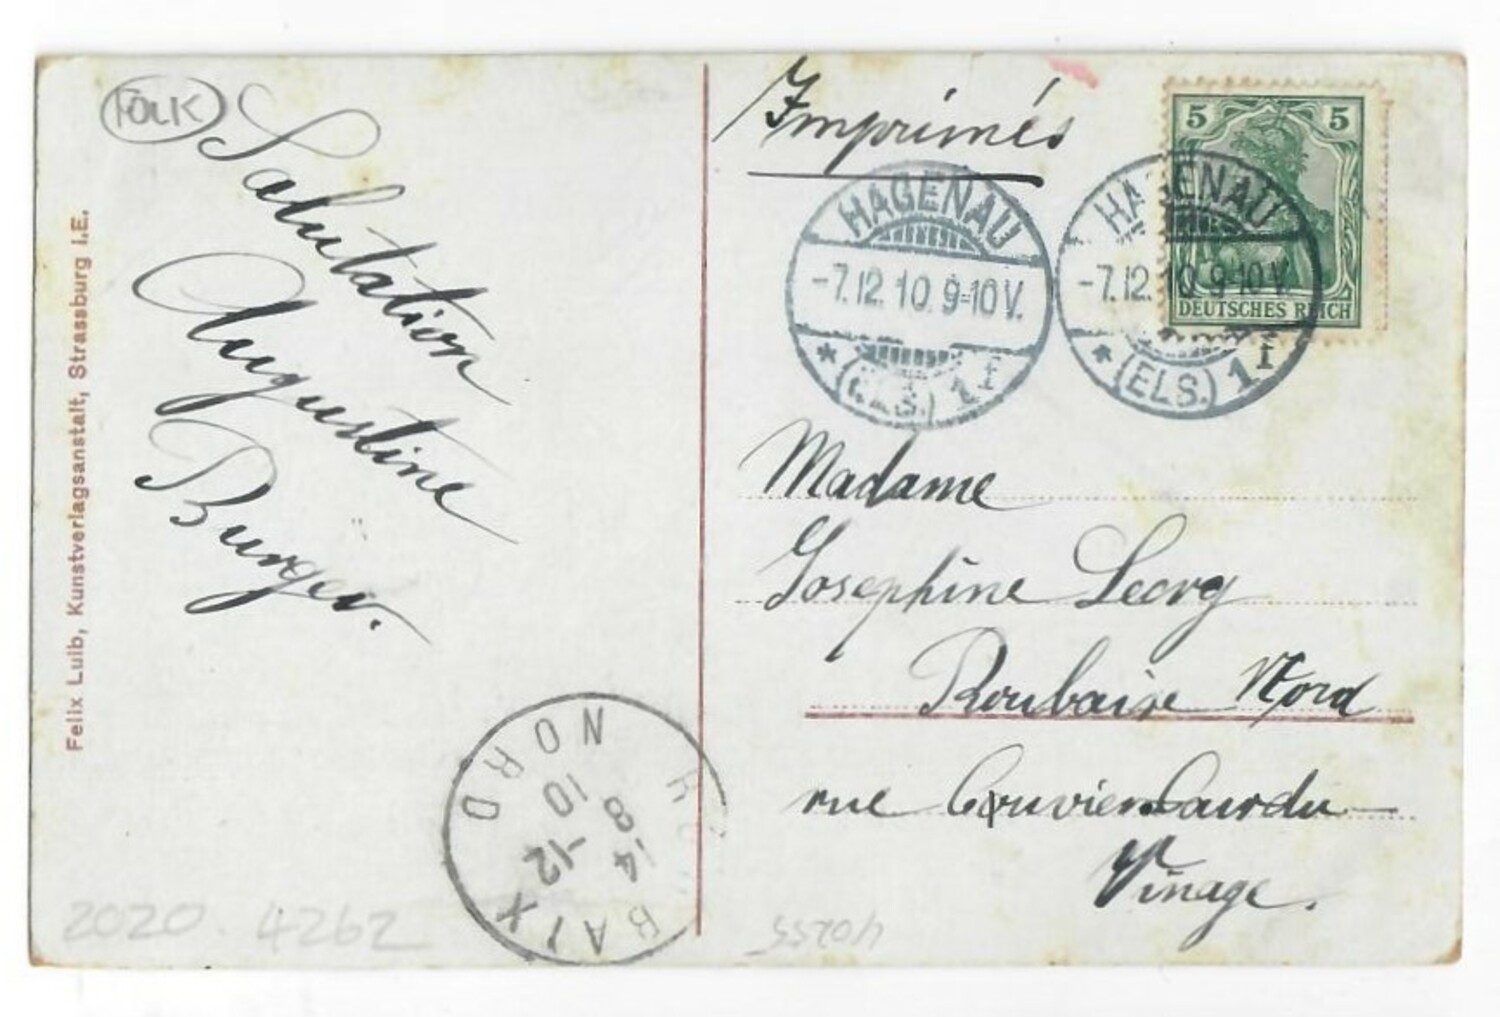 FOLK
Salutation
Augustine
Bürger.
Felix Luib, Kunstverlagsanstalt, Strassburg i.E.
Imprimés
5 5
DEUTSCHES REICH
HAGENAU
-7.12.10.9-10V.
* (ELS.) 1 I
HAGENAU
-7.12.10.9-10V.
* (ELS.) 1 I
Madame
Josephine Leorg
Roubaise Nord
rue
Vinage.
BAIX
NORD
14 8
-12
10
2020. 4262
40255